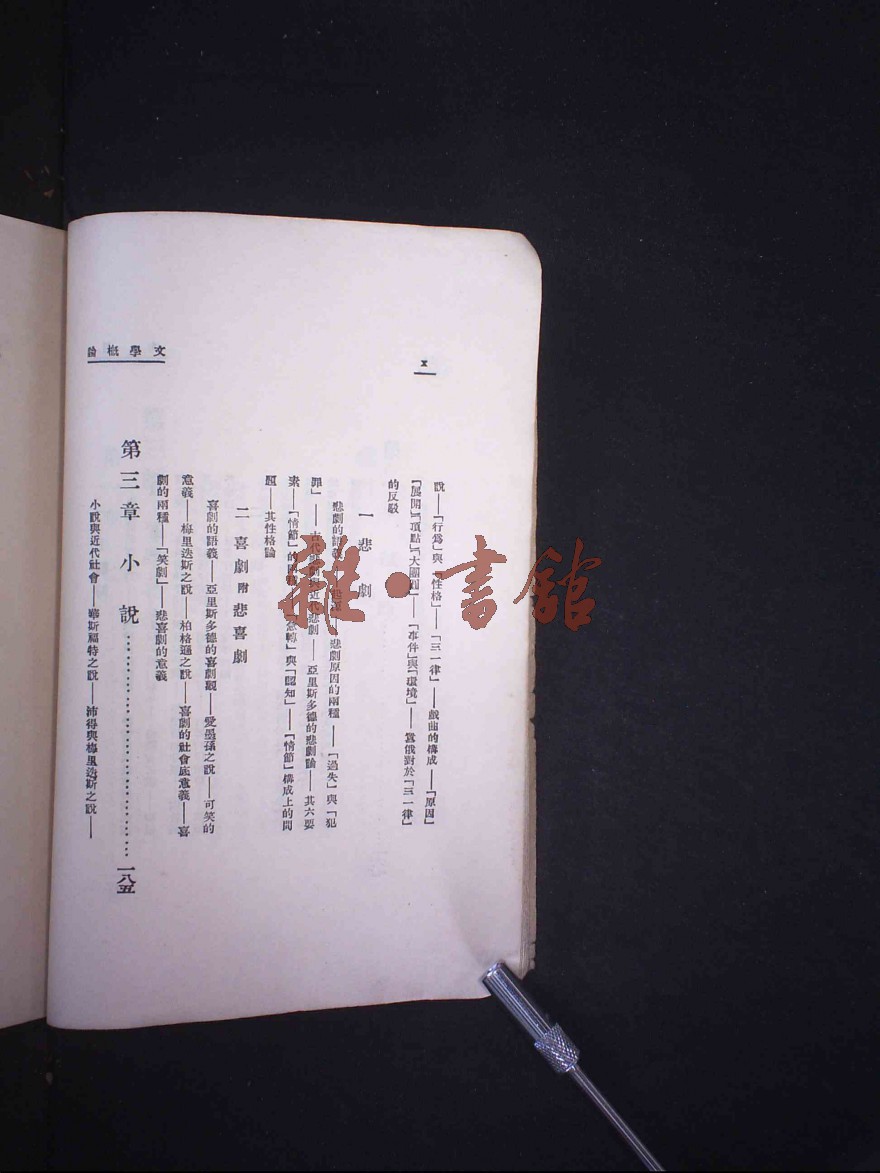 文學概論
x
說——「行爲」與「性格」——「三一律」——戲曲的構成——「原因」
「展開」「頂點」「大團圓」——「事件」與「環境」——囂俄對於「三一律」
的反駁
一 悲劇
悲劇的語義——悲劇原因的兩種——「過失」與「犯
罪」——古代悲劇與近代悲劇——亞里斯多德的悲劇論——其六要
素——「情節」的「急轉」與「認知」——「情節」構成上的問
題——其性格論
二 喜劇 附 悲喜劇
喜劇的語義——亞里斯多德的喜劇觀——愛墨孫之說——可笑的
意義——梅里迭斯之說——柏格遜之說——喜劇的社會底意義——喜
劇的兩種——「笑劇」——悲喜劇的意義
第三章 小說……………………一八五
小說與近代社會——華斯福特之說——沛得與梅里迭斯之說——
雜·書館